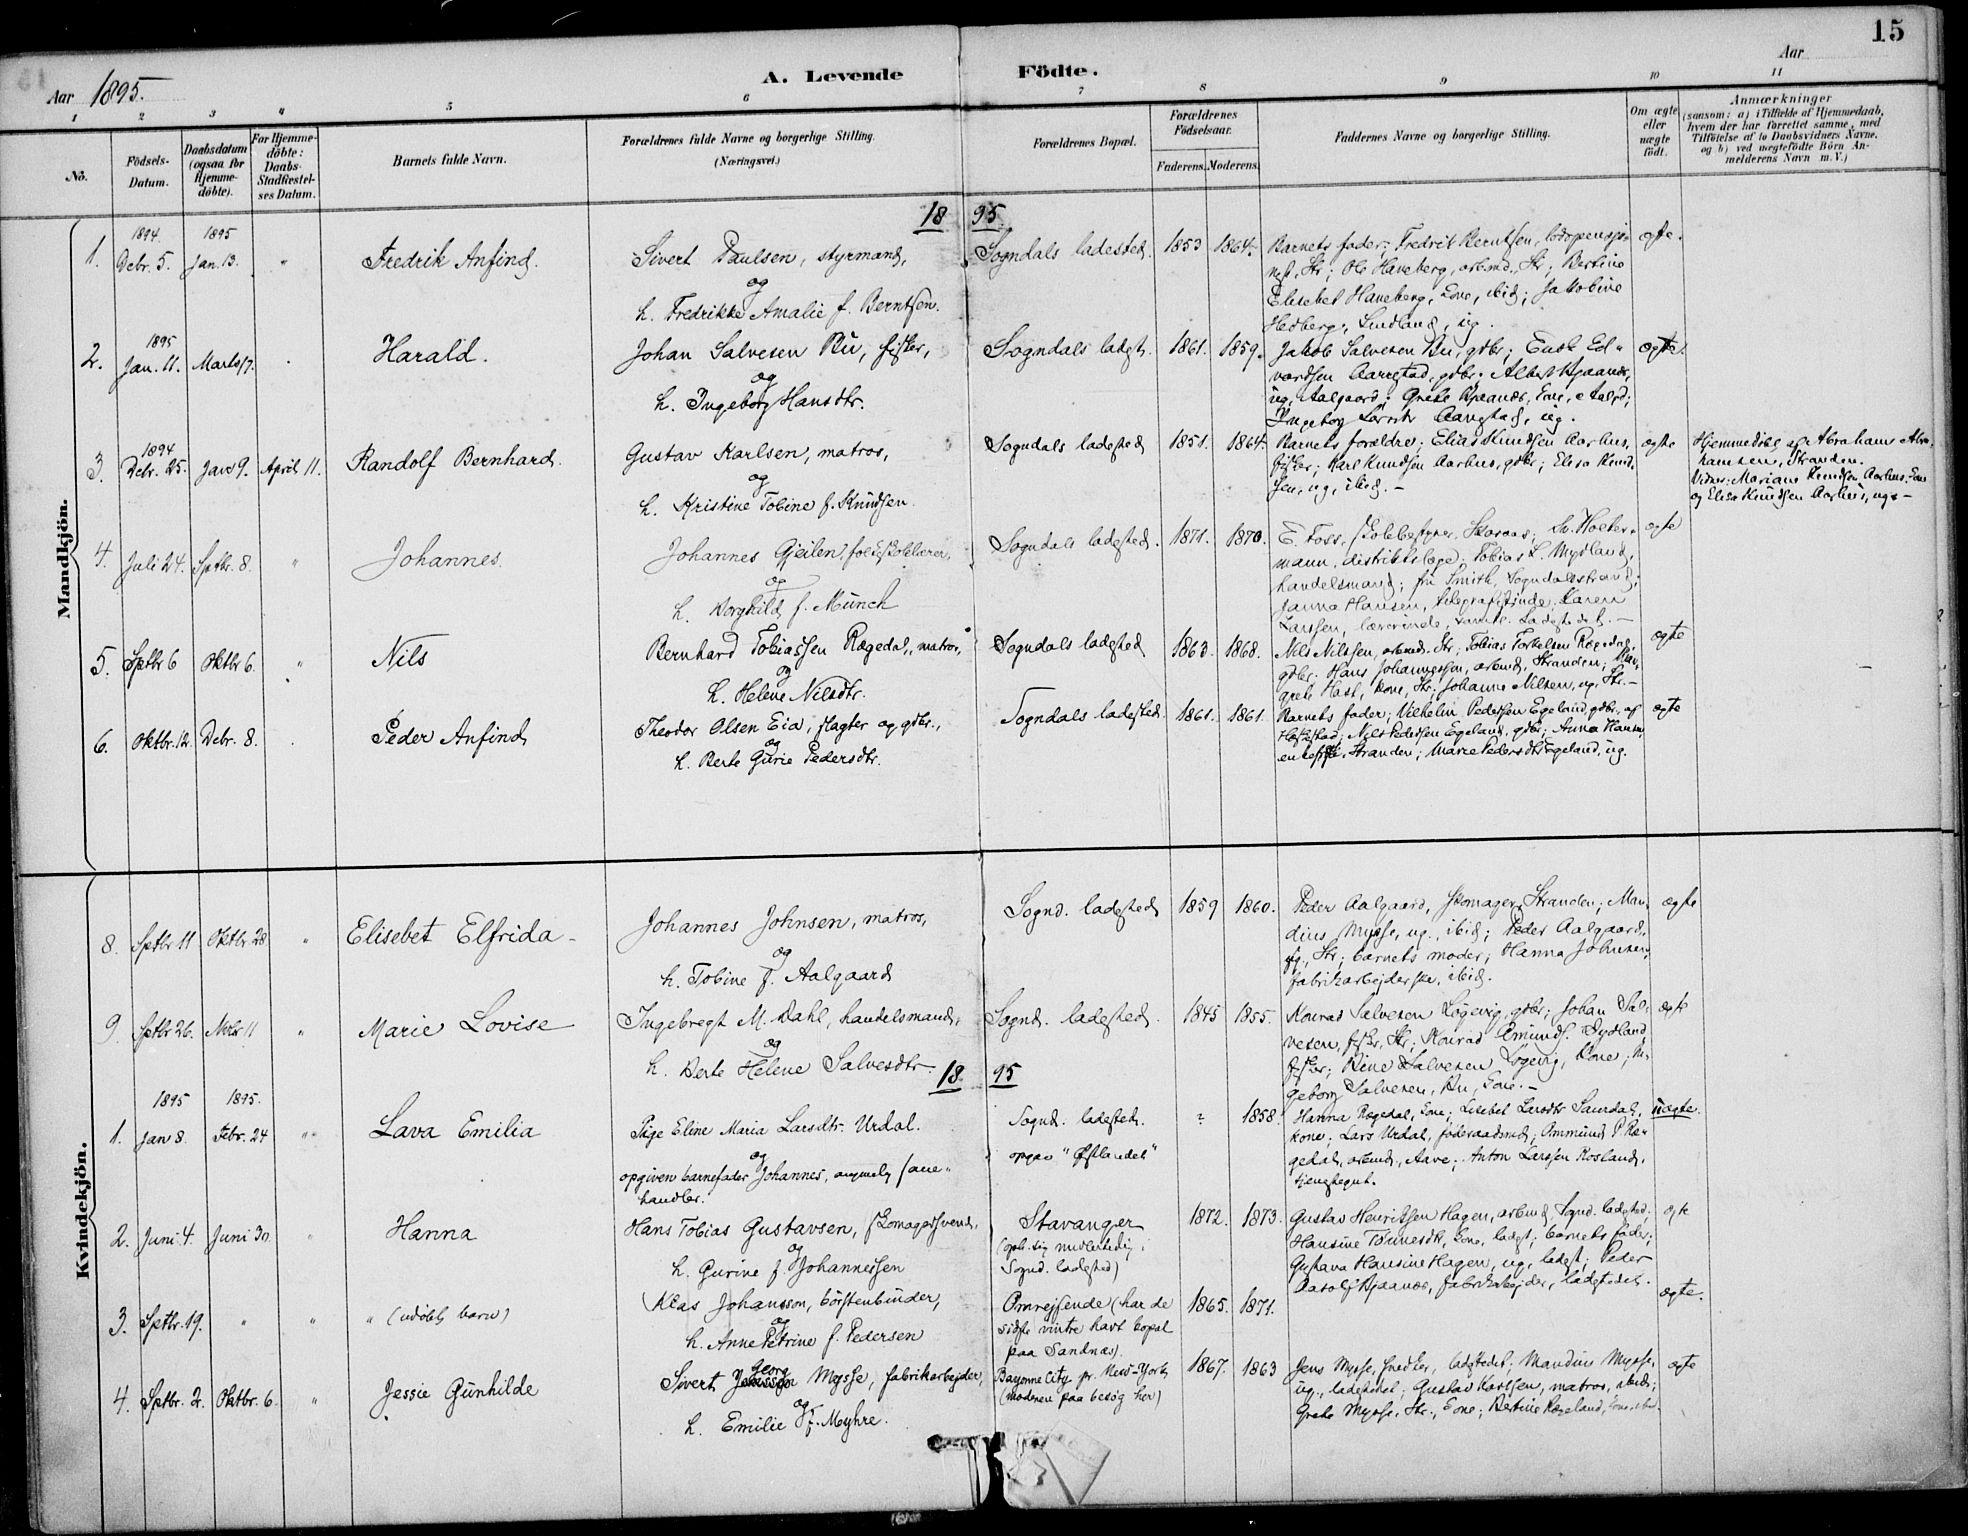 15
Aar 1895.
A. Levende Födte.
Aar
1 2 3 4 5 6 7 8 9 10 11
No.
Födsels-Datum.
Daabsdatum (ogsaa for Hjemmedöbte).
For Hjemmedöbte: Daabs-Stadfæstelses Datum.
Barnets fulde Navn.
Forældrenes fulde Navne og borgerlige Stilling. (Næringsvei.)
Forældrenes Bopæl.
Forældrenes Födselsaar.
Faderens. Moderens.
Faddernes Navne og borgerlige Stilling.
Om ægte eller uægte födt.
Anmærkninger
(saasom: a) i Tilfælde af Hjemmedaab,
hvem der har forrettet samme, med
Tilföielse af to Daabsvidners Navne,
og b) ved uægtefödte Börn Anmelderens Navn m. V.)
Mandkjön.
1895
1. 1894 Debr. 5. 1895 Jan. 13. " Fredrik Anfind.
Sivert Paulsen, styrmand,
og
h. Fredrikke Amalie f. Berntsen.
Sogndals ladested. 1853 1864.
Barnets fader; Fredrik Berntsen,
Str; Ole Haneberg, arbmd., Str; Bertine
Elisebet Haneberg, kone, ibid; Jakobine
Hedberg, Lindland, ug.
ægte.
2. 1895 Jan. 11. Marts 17. Harald.
Johan Salvesen Bu, fisker,
og
h. Ingeborg Hansdtr.
Sogndals ladst. 1861. 1859.
Jakob Salvesen Bu, gdbr; Enok Ed-
vardsen Aarrestad, gdbr; Albert Kjaanæs,
ug, Aalgaard; Grete Kjaanæs, kone, Aalgd;
Ingeborg
ægte.
3. 1894 Debr. 25. Jan 9. April 11. Randolf Bernhard.
Gustav Karlsen, matros,
og
h. Kristine Tobine f. Knudsen.
Sogndals ladested 1851. 1864.
Barnets forældre; Elias Knudsen Aarhus,
fisker; Karl Knudsen Aarhus, gdbr; Elisa Knud-
sen, ug, ibid. -
ægte
Hjemmedöbt af Abraham Abra-
hamsen, Stranden.
Vidner: Mariane Knudsen Aarhus, kone
og Elisa Knudsen Aarhus, ug. -
4. Juli 24. Septbr. 8. " Johannes.
Johannes Gjeilen, folkeskolelærer,
og
h. Borghild f. Münch
Sogndals ladested. 1871. 1870.
E. Foss, skolebestyrer,
mann, distriktslæge; Tobias L. Mydland,
handelsmand; fru Smith, Sogndalsstrand;
Janna Hansen, telegrafistinde, Karen
Larssen, lærerinde, samtl. ladestedet. -
ægte
5. Septbr 6 Oktbr 6. " Nils
Bernhard Tobiassen Rægedal, matros,
og
h. Helene Nilsdtr.
Sogndals ladested 1863. 1868.
Nils Nilssen, arbmd. Str; Tobias Torkelsen Rægedal,
gdbr. Hans Johannessen, arbmd, Stranden; Mar-
grete Hast, kone, Str; Johanne Nilsen, ug, Str. -
ægte
6. Oktbr. 12. Debr. 8. Peder Anfind
Theodor Olsen Eia, slagter og gdbr.,
og
h. Berte Gurie Pedersdtr.
Sogndals ladested. 1861. 1861.
Barnets fader; Vilhelm Pedersen Egeland, gdbr. af
Hæstad; Nils Pedersen Egeland, gdbr; Anna Hansen,
enke, Stranden; Marie Pedersdtr Egeland, ug.
ægte
Kvindekjön.
8. Septbr 11 Oktbr 28 " Elisebet Elfrida -
Johannes Johnsen, matros,
og
h. Tobine f. Aalgaard
Sognd. ladested 1859 1860.
Peder Aalgaard, skomager, Stranden; Man-
dius Mysse, ug., ibid; Peder Aalgaard,
Str; barnets moder; Hanna Johnsen,
fabrikarbejderske, ibid.
ægte
9. Septbr 26. Novbr 11 " Marie Lovise
Ingebregt M. Dahl, handelsmand,
og
h. Berte Helene Salvesdtr.
Sognd. ladested. 1845 1855.
Konrad Salvesen Løgevig, gdbr; Johan Sal-
vesen, fisker, Str; Konrad Emunds. Rydland
fisker; Rine Salvesen Løgevig, kone; In-
geborg Salvesen, Bu, kone. -
ægte
1895
1. 1895 Jan 8. 1895. Febr. 24 " Lava Emilia
Pige Eline Maria Larsdtr. Urdal.
og
opgiven barnefader Johannes,
handler.
Sognd. ladested.
opgav "Østlandet"
? 1858.
Hanna Rægedal, kone; Lisebet Larsdtr Saurdal,
kone; Lars Urdal, føderaadsmd; Ommund P. Ræ-
gedal, arbmd., Aave; Anton Larssen Rosland,
tjenestegut.
uægte.
2. Juni 4. Juni 30 " Hanna
Hans Tobias Gustavsen, skomagersvend,
og
h. Gurine f. Johannessen
Stavanger
(oph. sig midlertidig i
Sognd. ladested)
1872. 1873.
Gustav Henriksen Hagen, arbmd, Sognd. ladested.
Hansine Tønnesdtr, kone, ladest; barnets fader;
Gustava Hansine Hagen, ug, ladest; Peder
Aadolf Kjaanæs, fabrikarbejder, ladestedet.
ægte
3. Septbr. 19. " " " (udöbt barn)
Klas Johansson, børstenbinder,
og
h. Anne Petrine f. Pedersen
Omrejsende (har de
sidste vintre havt bopæl
paa Sandnæs).
1865. 1871.
ægte.
4. Septbr. 2. Oktbr. 6. " Jessie Gunhilde
Sivert Georg Mysse, fabrikarbejder,
og
h. Emilie f. Myhre.
Bayonne City pr. New-York
(moderen paa besøg her)
1867. 1863
Jens Mysse, snedker, ladestedet; Mandius Mysse,
ug., ladestedet; Gustav Karlsen, matros, ibid;
Grete Mysse, Str., kone; Bertine Rægeland, kone, ibid.
ægte